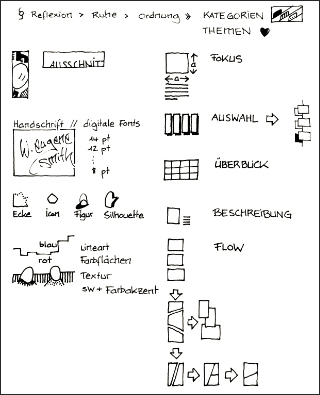 § Reflexion > Ruhe > Ordnung » KATEGORIEN
THEMEN ♥
AUSSCHNITT
FOKUS
AUSWAHL
Handschrift // digitale Fonts
W. Eugene
Smith
14 pt
12 pt
⋮
8 pt
ÜBERBLICK
Ecke Icon Figur Silhouette
BESCHREIBUNG
blau
rot
Lineart
Farbflächen
Textur
SW + Farbakzent
FLOW